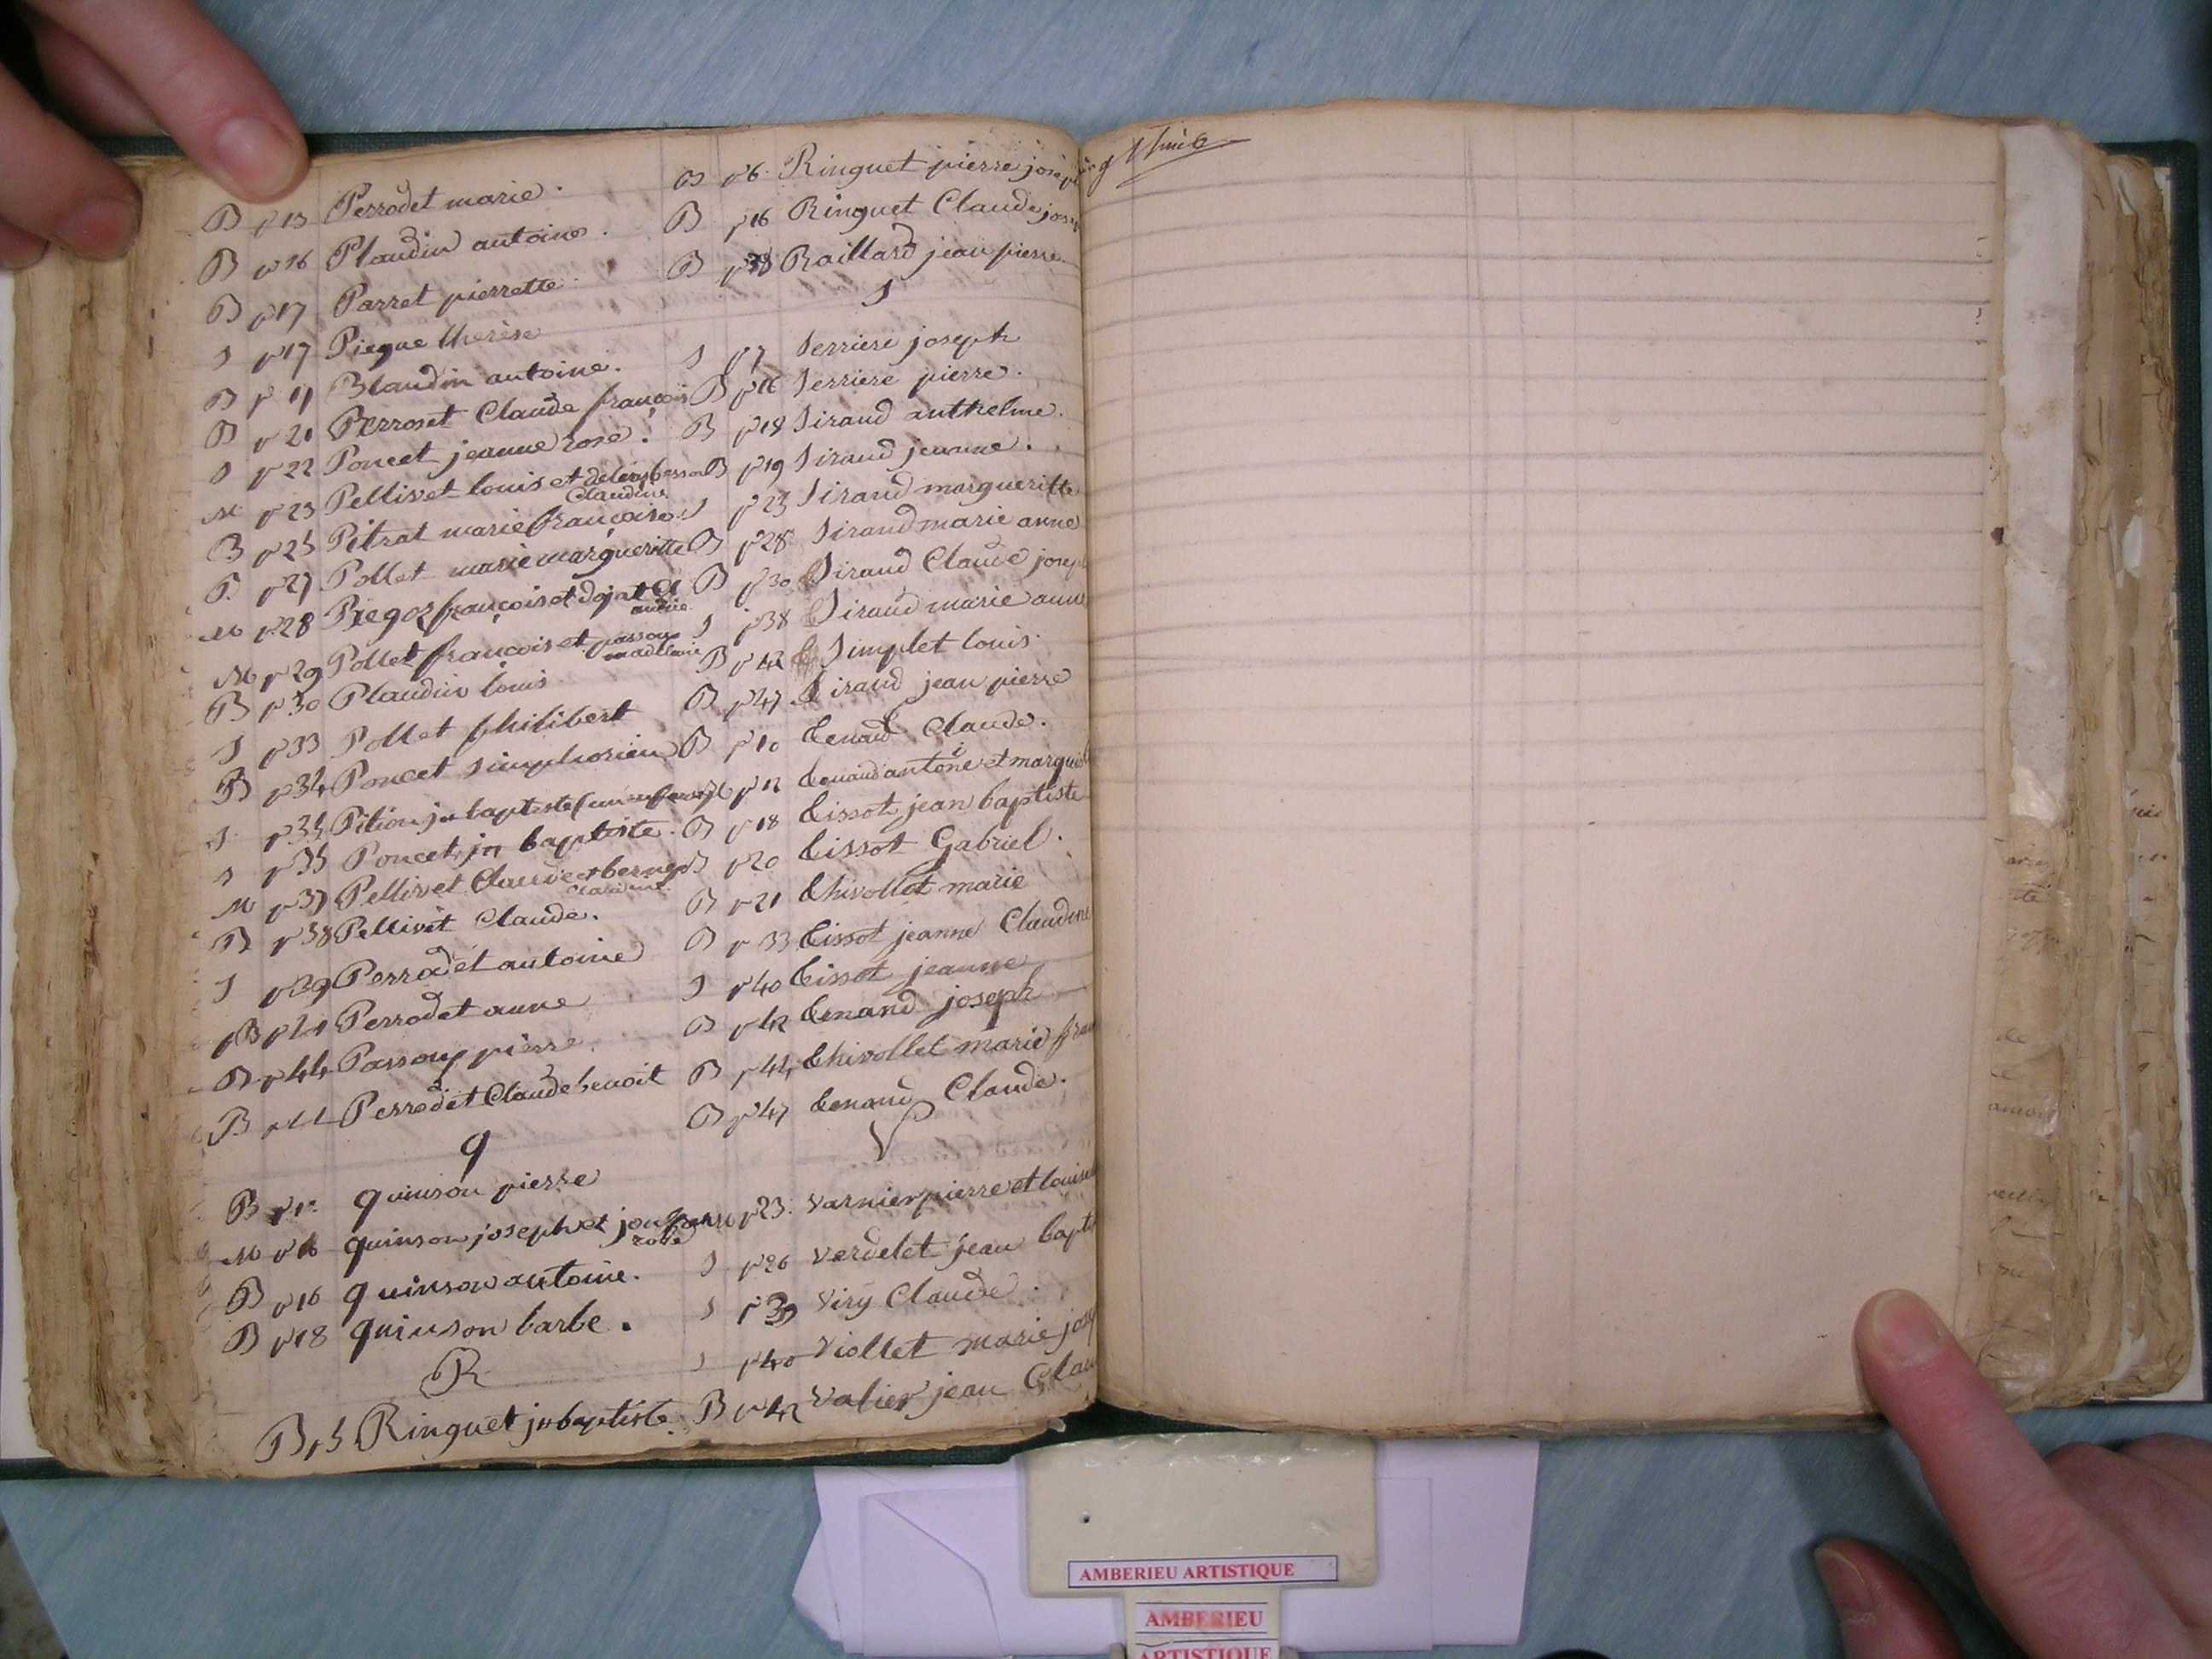 B p 13 Perrodet marie.
B p 16 Plaudin antoine.
B p 17 Parret pierrette
S p 17 Piegue therèse
B p 19 Blaudin antoine.
B p 21 Perroset Claude françois
S p 22 Poncet jeanne rose.
M p 23 Pellivet louis et
Claudine
B p 25 Pitrat marie françoise
p 27 Pollet marie margueritte
M p 28 françois et
M p 29 Pollet françois et passou
madelaine
B p 30 Plaudin louis
S p 33 Pollet philibert
B p 34 Poncet simphorien
S p 35 Pition jn baptiste
S p 35 Poncet jn baptiste.
M p 37 Pellivet Claude et
Claudine
B p 38 Pellivet Claude.
S p 39 Perrodet antoine
B Perrodet anne
B p 44 Passou pierre
B Perrodet Claude benoit
q
B quinson pierre
M p 16 quinson joseph et
rose
B p 16 quinson antoine.
B p 18 quinson barbe.
R
B p 5 Ringuet jn baptiste.
B p 6 Ringuet pierre joseph
B p 16 Ringuet Claude
B p 38 Raillard jean pierre
S
S p 7 Serriere joseph
B p 16 Serriere pierre.
B p 18 Siraud anthelme.
B p 19 Siraud jeanne.
S p 23 Siraud margueritte
B p 28 Siraud marie anne
B p 30 Siraud Claude
S p 38 Siraud marie anne
B p 42 Simplet louis
B p 47 Siraud jean pierre
B p 10 tenand Claude.
p 12 tenand antoine et
B p 18 tissot jean baptiste
B p 20 tissot Gabriel.
B p 21 thivollet marie
B p 33 tissot jeanne Claudine
S p 40 tissot jeanne
B p 42 tenand joseph
B p 44 thivollet marie
B p 47 tenand Claude.
V
p 23 varnier pierre et
S p 26 verdelet jean
S p 39 viry Claude.
S p 40 viollet marie
B p 42 valier jean
AMBERIEU ARTISTIQUE
AMBERIEU
ARTISTIQUE